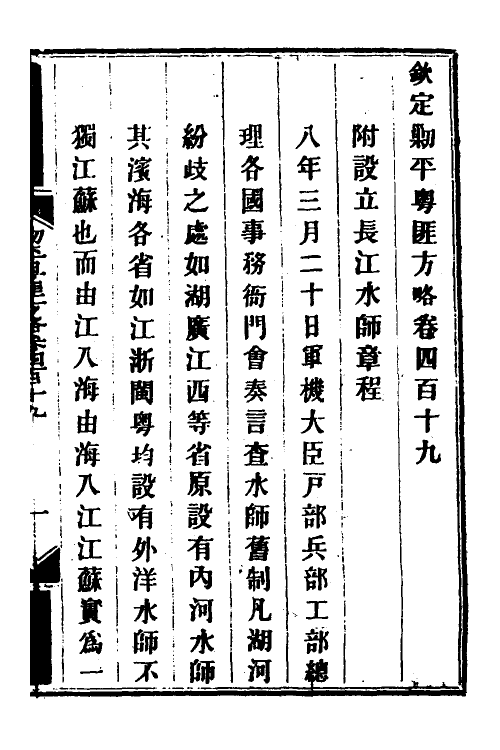 欽定勦平粵匪方略卷四百十九
附設立長江水師章程
八年三月二十日軍機大臣戶部兵部工部總
理各國事務衙門會奏言查水師舊制凡湖河
紛歧之處如湖廣江西等省原設有內河水師
其濱海各省如江浙閩粵均設有外洋水師不
獨江蘇也而由江入海由海入江江蘇實為一